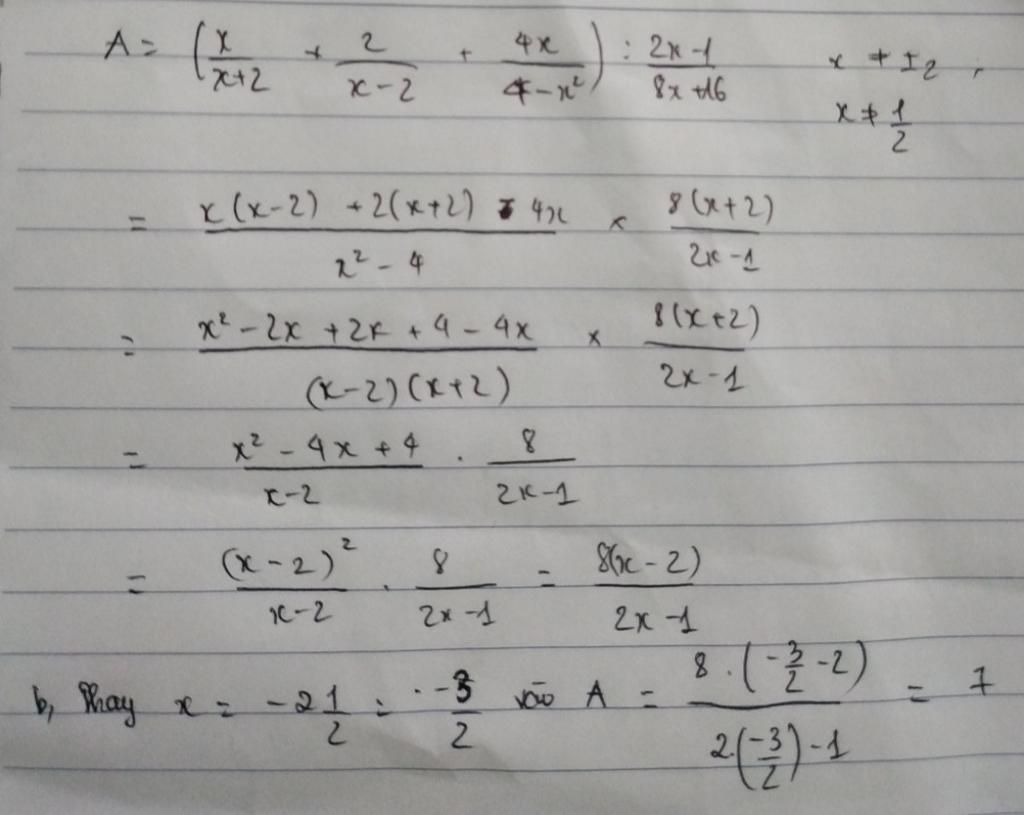 A = (x/(x+2) + 2/(x-2) + 4x/(4-x²)) : (2x-1)/(8x+16) x ≠ ±2, x ≠ 1/2
= (x(x-2) + 2(x+2) - 4x)/(x²-4) × 8(x+2)/(2x-1)
= (x² - 2x + 2x + 4 - 4x)/((x-2)(x+2)) × 8(x+2)/(2x-1)
= (x² - 4x + 4)/(x-2) . 8/(2x-1)
= (x-2)²/(x-2) . 8/(2x-1) = 8(x-2)/(2x-1)
b, Thay x = -2 1/2 = -3/2 vào A = (8.(-3/2 - 2))/(2.(-3/2) - 1) = 7